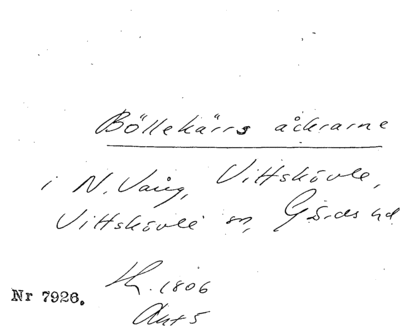 Böllekärrs åkrarne
i N. Vång, Vittskövle,
Vittskövle sn, Gärds hd
Nr 7926.
1806
Akt 5